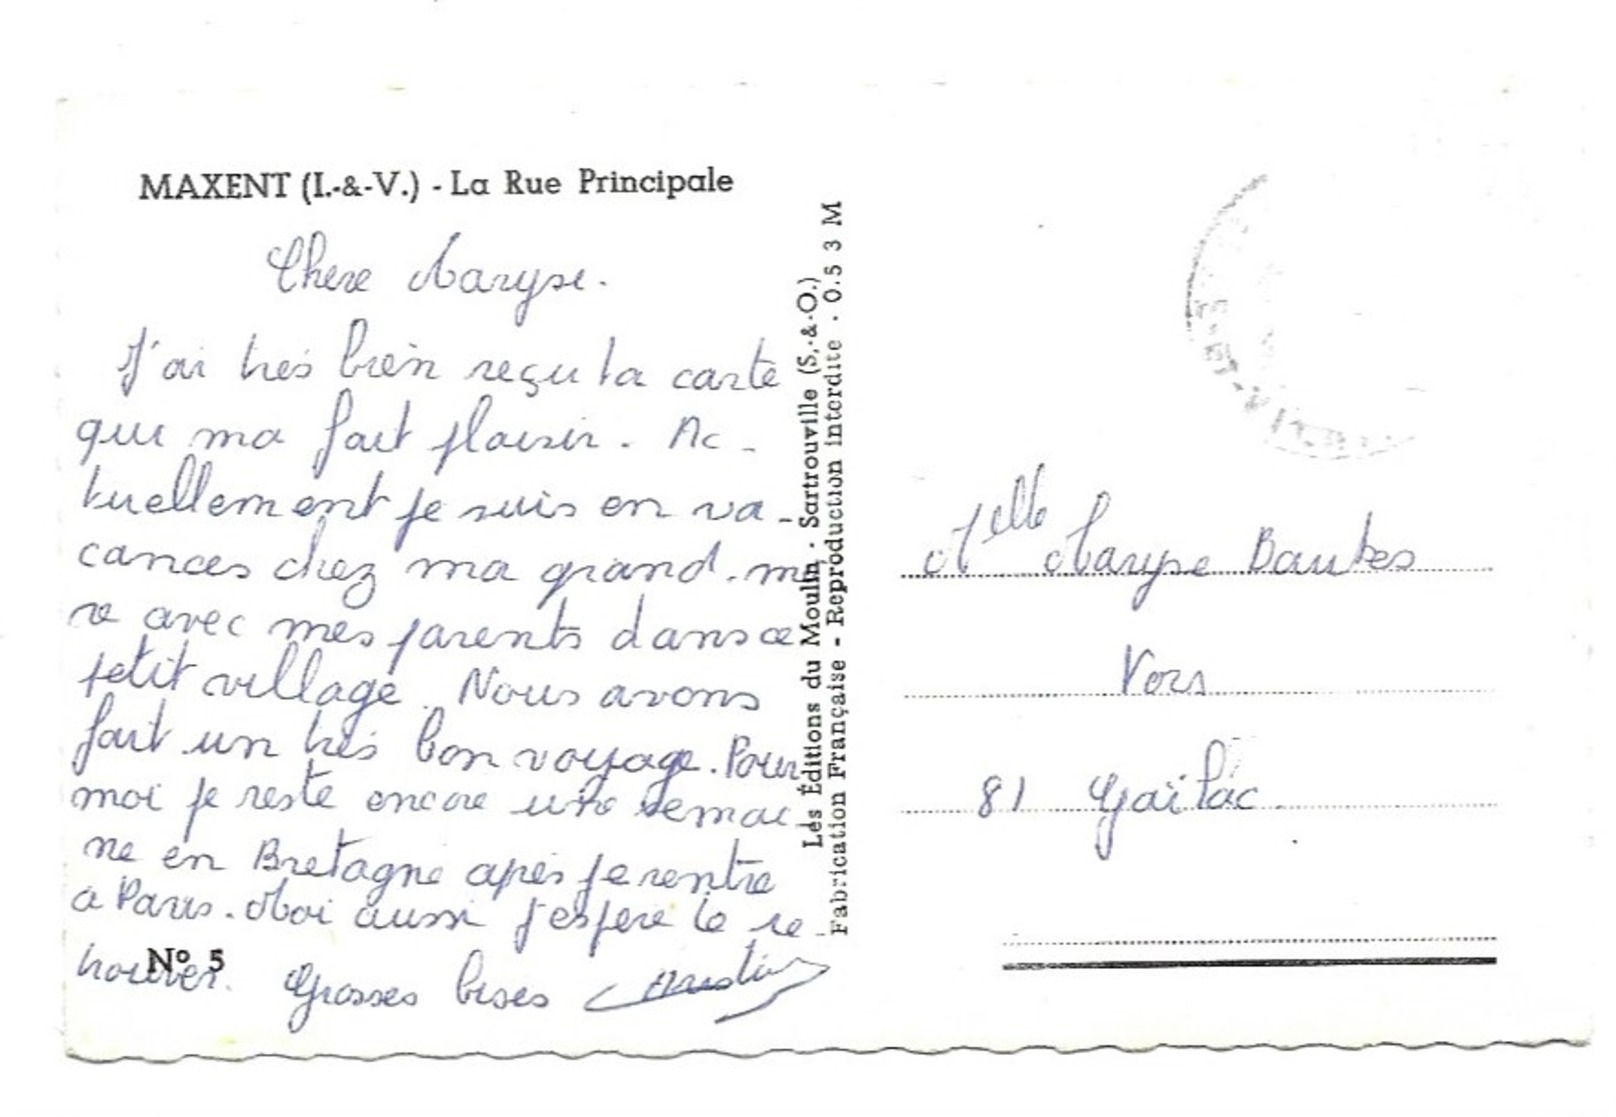 MAXENT (I.-&-V.) - La Rue Principale
Chere Maryse.
J'ai très bien reçu ta carte
qui ma fait plaisir. Ac-
tuellement je suis en va-
cances chez ma grand-mè
re avec mes parents dans ce
petit village. Nous avons
fait un très bon voyage. Pour
moi je reste encore une semai-
ne en Bretagne après je rentre
a Paris. Moi aussi j'espère te re-
trouver. Grosses bises
N° 5
Les Éditions du Moulin - Sartrouville (S.-&-O.)
Fabrication Française - Reproduction interdite - 0.5 3 M
Melle Maryse Bautes
Vors
81 Gaïlac